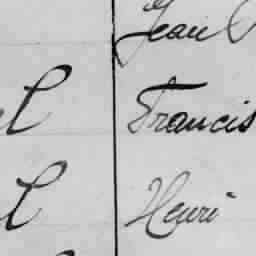 Jean
Francis
Henri